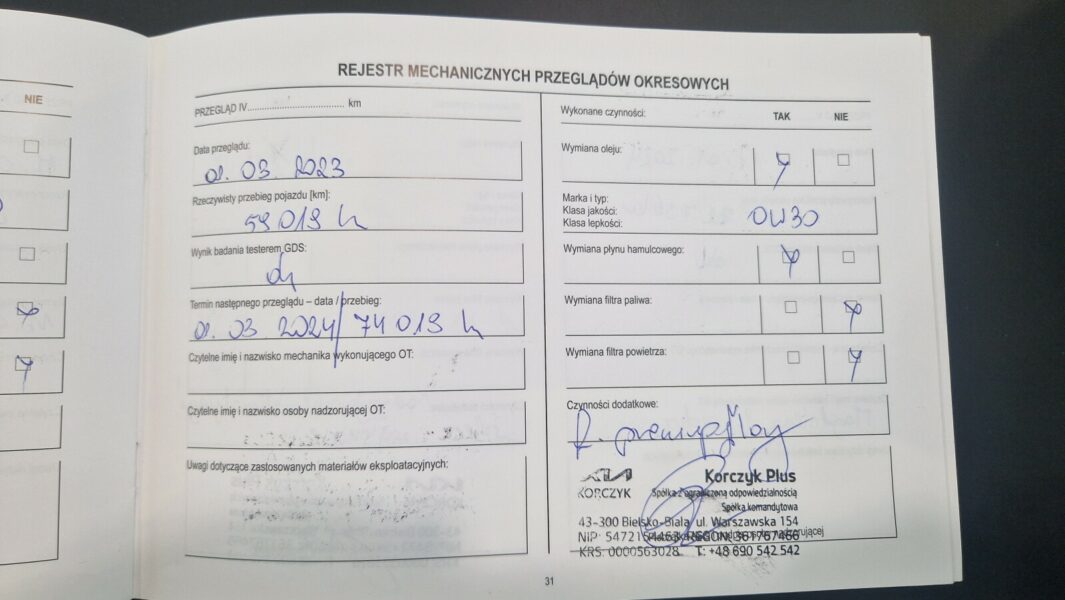 NIE
REJESTR MECHANICZNYCH PRZEGLĄDÓW OKRESOWYCH
PRZEGLĄD IV................................... km
Data przeglądu:
01. 03 2023
Rzeczywisty przebieg pojazdu [km]:
59 019 k
Wynik badania testerem GDS:
Termin następnego przeglądu – data / przebieg:
01. 03 2024 / 74 019 k
Czytelne imię i nazwisko mechanika wykonującego OT:
Czytelne imię i nazwisko osoby nadzorującej OT:
Uwagi dotyczące zastosowanych materiałów eksploatacyjnych:
Wykonane czynności: TAK NIE
Wymiana oleju:
Marka i typ:
Klasa jakości:
Klasa lepkości:
0W30
Wymiana płynu hamulcowego:
Wymiana filtra paliwa:
Wymiana filtra powietrza:
Czynności dodatkowe:
KIA
KORCZYK
Korczyk Plus
Spółka z ograniczoną odpowiedzialnością
Spółka komandytowa
43-300 Bielsko-Biała, ul. Warszawska 154
NIP: REGON: 361767466
KRS: 0000563028 T: +48 690 542 542
31